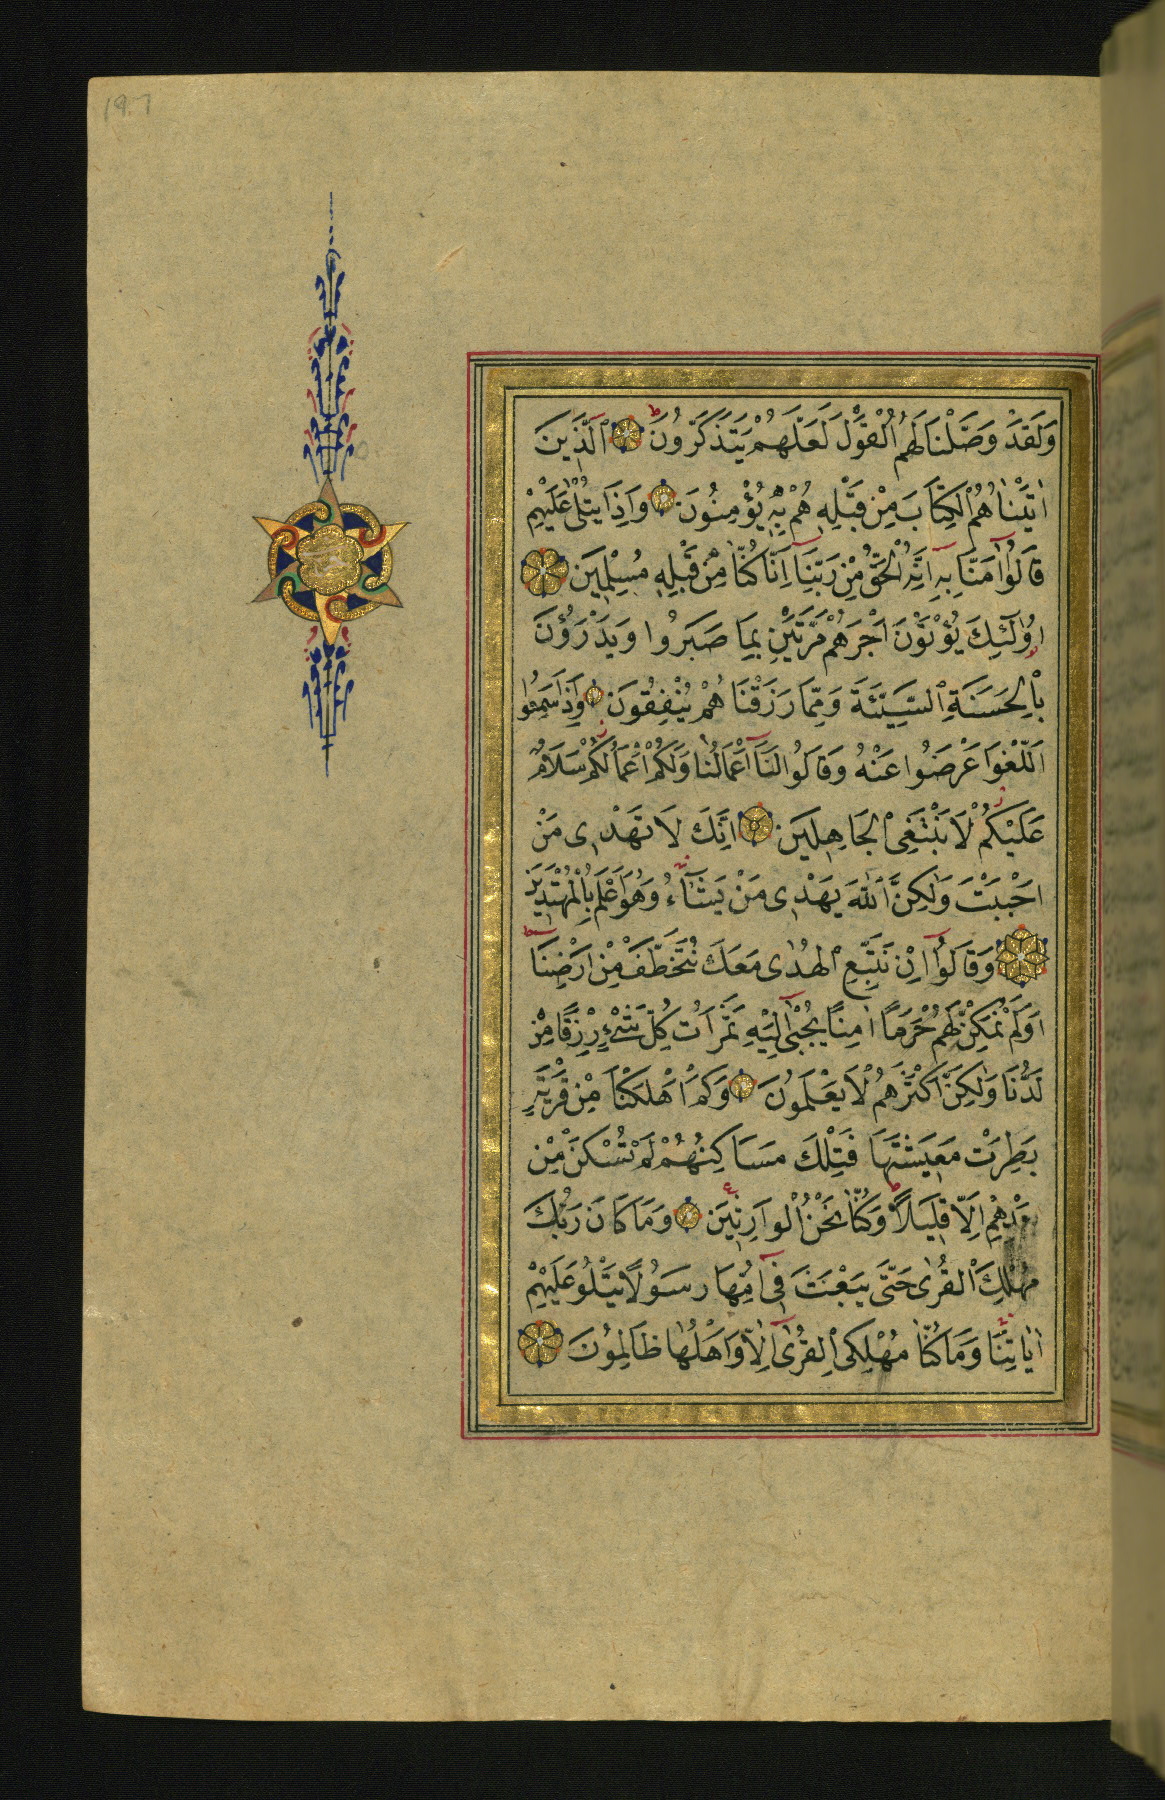 وَلَقَدْ وَصَّلْنَا لَهُمُ الْقَوْلَ لَعَلَّهُمْ يَتَذَكَّرُونَ اَلَّذِينَ
اٰتَيْنَاهُمُ الْكِتَابَ مِنْ قَبْلِهِ هُمْ بِهِ يُؤْمِنُونَ وَاِذَا يُتْلٰى عَلَيْهِمْ
قَالُوا اٰمَنَّا بِهِ اِنَّهُ الْحَقُّ مِنْ رَبِّنَا اِنَّا كُنَّا مِنْ قَبْلِهِ مُسْلِمِينَ
اُولٰئِكَ يُؤْتَوْنَ اَجْرَهُمْ مَرَّتَيْنِ بِمَا صَبَرُوا وَيَدْرَؤُنَ
بِالْحَسَنَةِ السَّيِّئَةَ وَمِمَّا رَزَقْنَا هُمْ يُنْفِقُونَ وَاِذَا سَمِعُوا
اللَّغْوَ اَعْرَضُوا عَنْهُ وَقَالُوا لَنَا اَعْمَالُنَا وَلَكُمْ اَعْمَالُكُمْ سَلَامٌ
عَلَيْكُمْ لَا نَبْتَغِى الْجَاهِلِينَ اِنَّكَ لَا تَهْدِى مَنْ
اَحْبَبْتَ وَلٰكِنَّ اللّٰهَ يَهْدِى مَنْ يَشَاءُ وَهُوَ اَعْلَمُ بِالْمُهْتَدِينَ
وَقَالُوا اِنْ نَتَّبِعِ الْهُدٰى مَعَكَ نُتَخَطَّفْ مِنْ اَرْضِنَا
اَوَلَمْ نُمَكِّنْ لَهُمْ حَرَمًا اٰمِنًا يُجْبٰى اِلَيْهِ ثَمَرَاتُ كُلِّ شَىْءٍ رِزْقًا مِنْ
لَدُنَّا وَلٰكِنَّ اَكْثَرَهُمْ لَا يَعْلَمُونَ وَكَمْ اَهْلَكْنَا مِنْ قَرْيَةٍ
بَطِرَتْ مَعِيشَتَهَا فَتِلْكَ مَسَاكِنُهُمْ لَمْ تُسْكَنْ مِنْ
بَعْدِهِمْ اِلَّا قَلِيلًا وَكُنَّا نَحْنُ الْوَارِثِينَ وَمَا كَانَ رَبُّكَ
مُهْلِكَ الْقُرٰى حَتّٰى يَبْعَثَ فِى اُمِّهَا رَسُولًا يَتْلُو عَلَيْهِمْ
اٰيَاتِنَا وَمَا كُنَّا مُهْلِكِى الْقُرٰى اِلَّا وَاَهْلُهَا ظَالِمُونَ